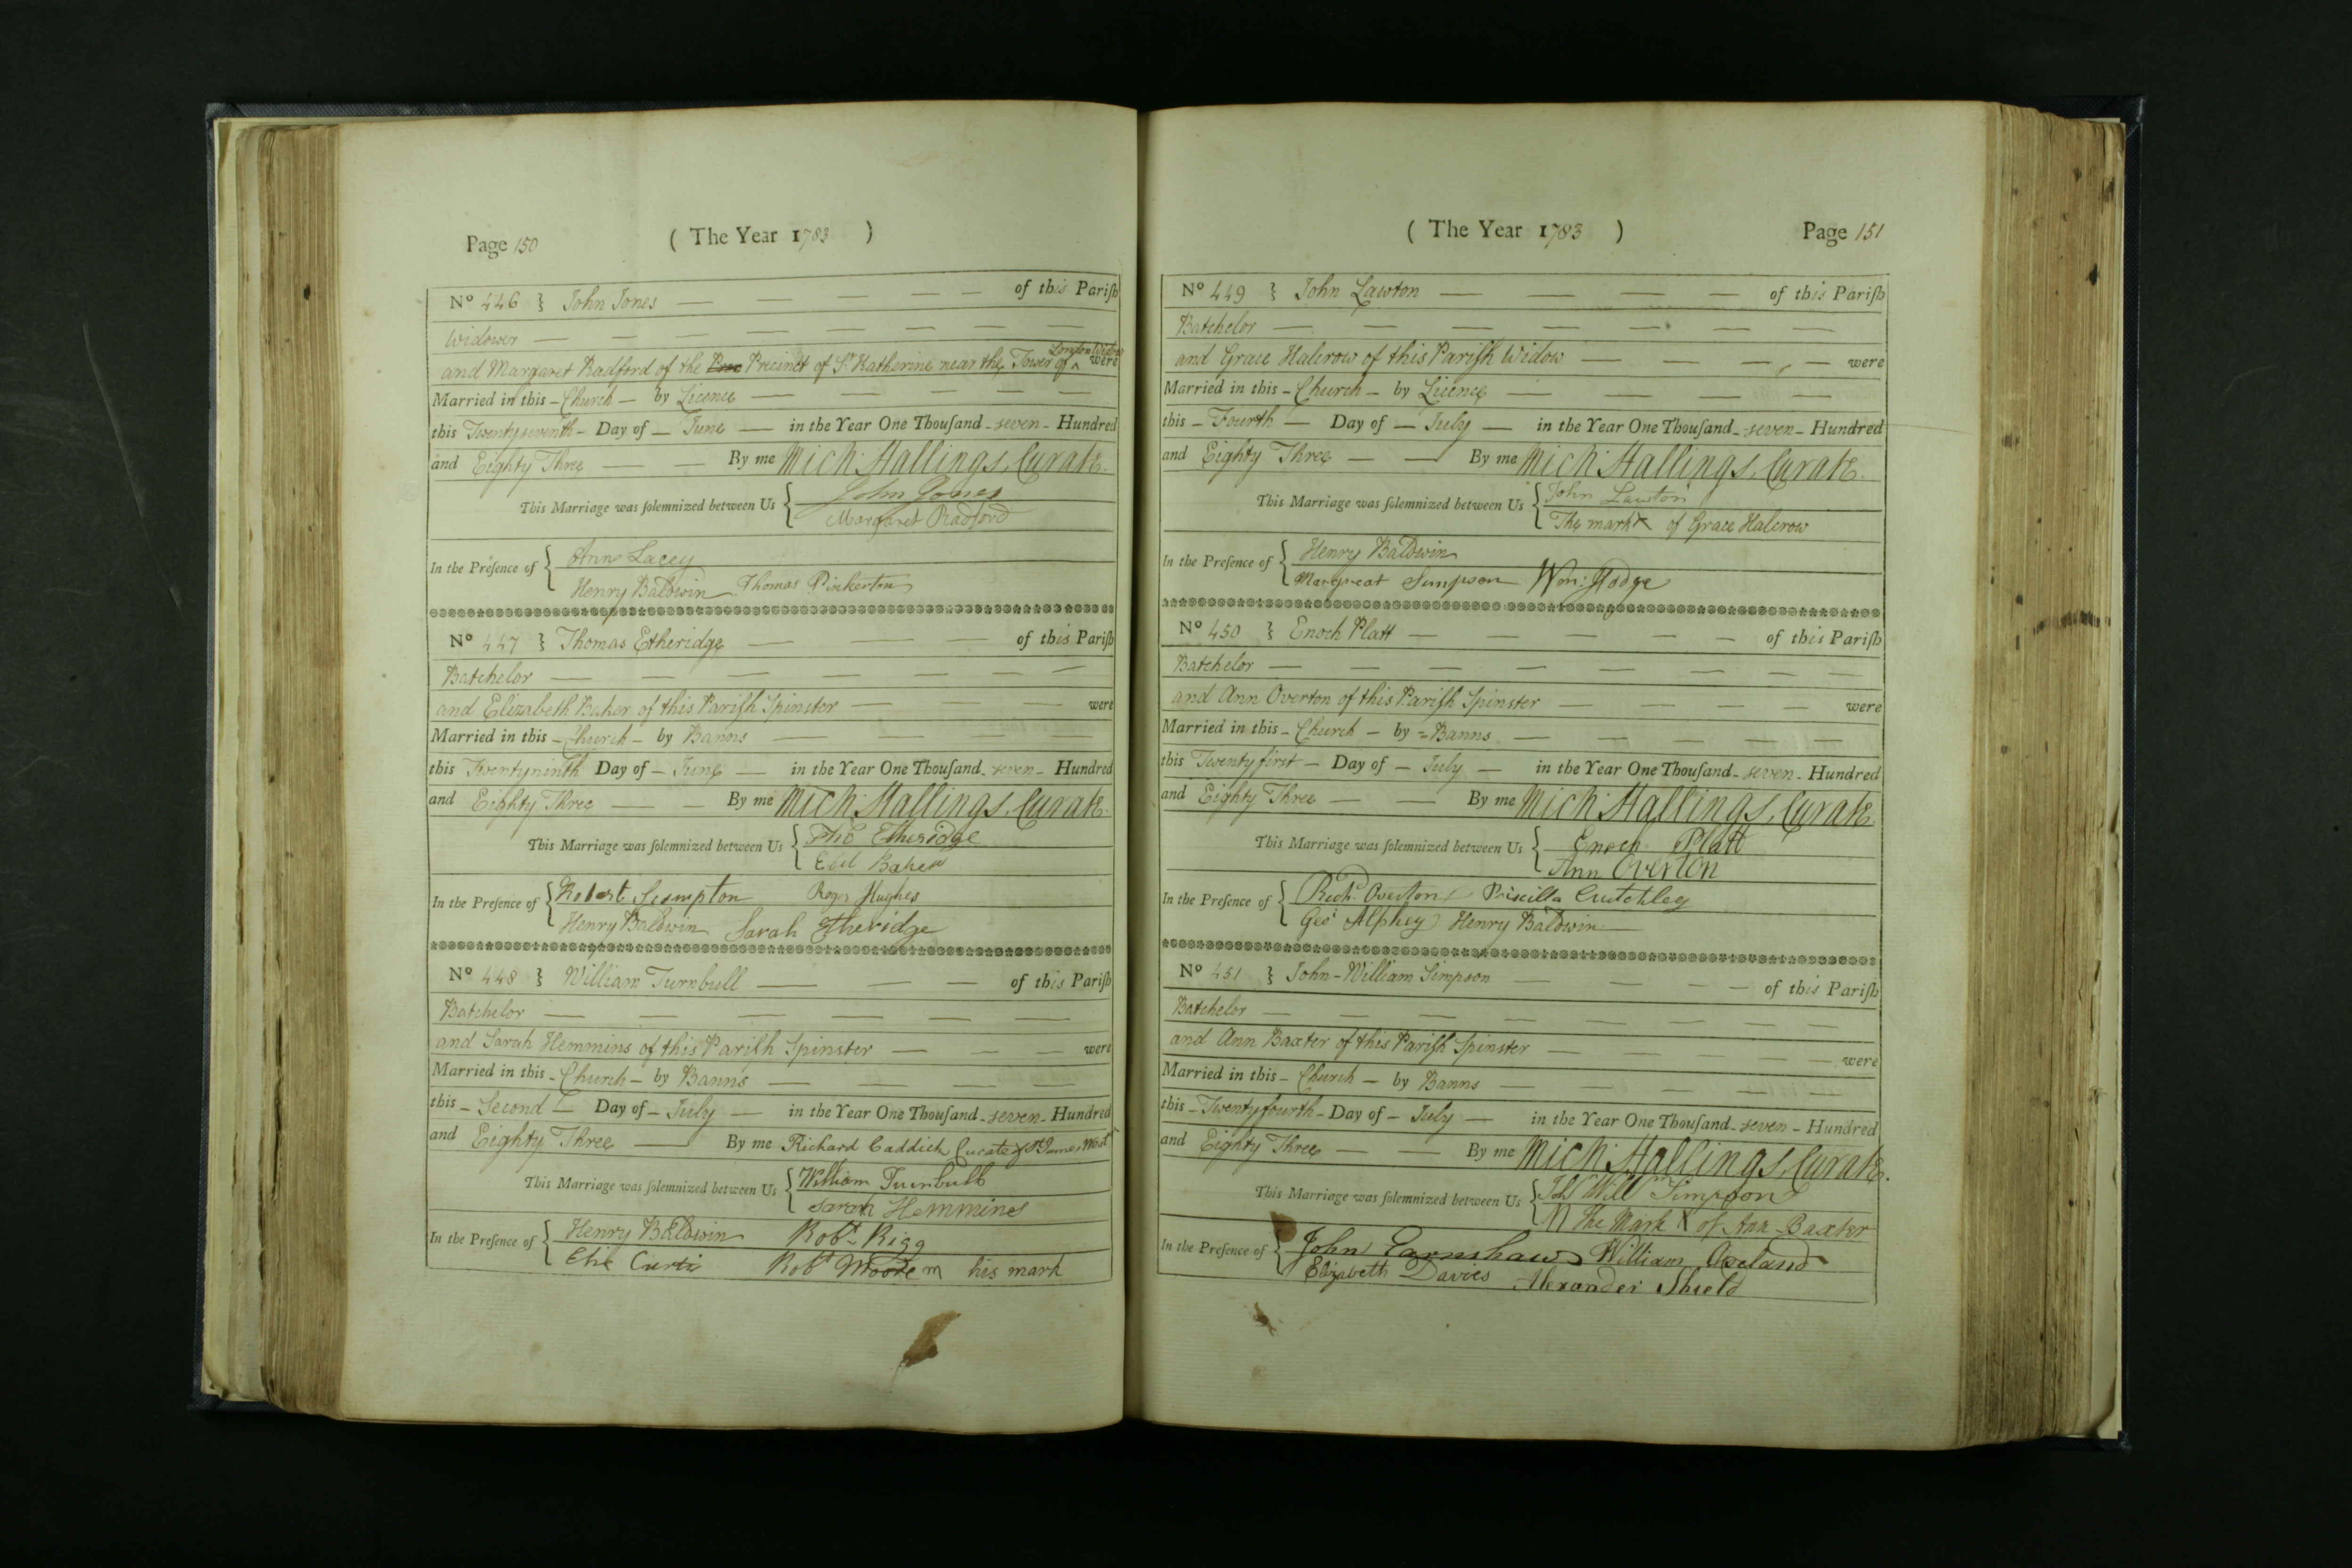 Page 150 ( The Year 1783 )
No 446 } John Jones — — — — — of this Parish
Widower — — — — — — — —
and Margaret Radford of the Precinct of St Katherine near the Tower of ^ London Widow were
Married in this - Church - by Licence — — — —
this Twenty seventh - Day of - June — in the Year One Thousand - seven - Hundred
and Eighty Three — — By me Mich: Hallings, Curate.
This Marriage was solemnized between Us { John Jones
Margaret Radford
In the Presence of { Ann Lacey
Henry Baldwin Thomas Pinkerton
No 447 } Thomas Etheridge — — — — of this Parish
Batchelor — — — — — — —
and Elizabeth Baker of this Parish Spinster — — — were
Married in this - Church - by Banns — — — —
this Twenty ninth Day of - June — in the Year One Thousand - seven - Hundred
and Eighty Three — — By me Mich: Hallings, Curate.
This Marriage was solemnized between Us { Tho Etheridge
Baker
In the Presence of { Robert Roger Hughes
Henry Baldwin Sarah Etheridge
No 448 } William Turnbull — — — of this Parish
Batchelor — — — — — — —
and Sarah Hemmins of this Parish Spinster — — — were
Married in this - Church - by Banns — — — —
this - Second - Day of - July — in the Year One Thousand - seven - Hundred
and Eighty Three — By me Richard Caddick Curate of St James West
This Marriage was solemnized between Us { William Turnbull
Sarah Hemmines
In the Presence of { Henry Baldwin Robt Rigg
Eliz Curtis Robt Moore m his mark
( The Year 1783 ) Page 151
No 449 } John Lawton — — — — of this Parish
Batchelor — — — — — — —
and Grace Halcrow of this Parish Widow — — — — were
Married in this - Church - by Licence — — — —
this - Fourth — Day of - July — in the Year One Thousand - seven - Hundred
and Eighty Three — — By me Mich: Hallings, Curate.
This Marriage was solemnized between Us { John Lawton
The mark X of Grace Halcrow
In the Presence of { Henry Baldwin
Margreat Simpson Wm: Hodge
No 450 } Enoch Platt — — — — — of this Parish
Batchelor — — — — — — — —
and Ann Overton of this Parish Spinster — — — — were
Married in this - Church - by - Banns — — — — —
this Twenty first - Day of - July — in the Year One Thousand - seven - Hundred
and Eighty Three — — By me Mich: Hallings, Curate.
This Marriage was solemnized between Us { Enoch Platt
Ann Overton
In the Presence of { Richd Overton Priscilla Crutchley
Geo: Alphey Henry Baldwin
No 451 } John - William Simpson — — — — of this Parish
Batchelor — — — — — — — —
and Ann Baxter of this Parish Spinster — — — — were
Married in this - Church - by Banns — — — — —
this - Twenty fourth - Day of - July — in the Year One Thousand - seven - Hundred
and Eighty Three — — By me Mich: Hallings, Curate.
This Marriage was solemnized between Us { Will Simpson
The Mark X of Ann Baxter
In the Presence of { John Earnshaw William
Elizabeth Davies Alexander Shield